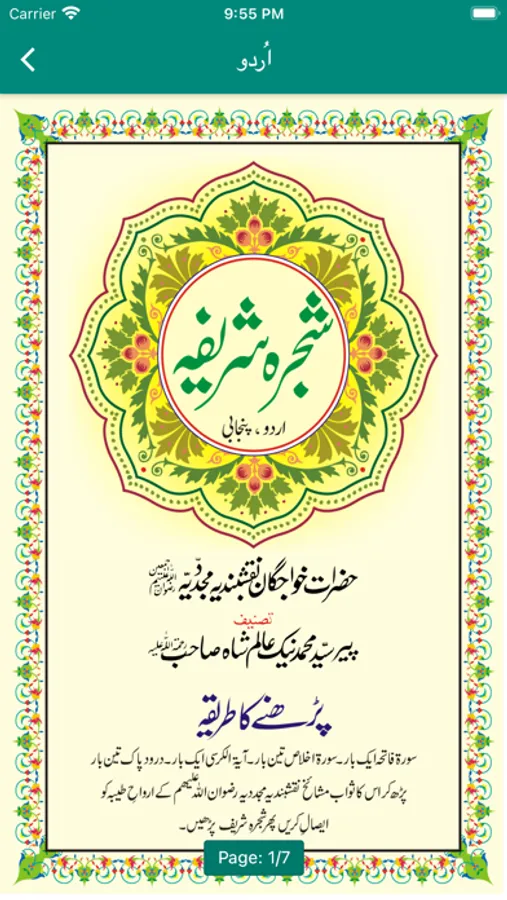 Carrier 9:55 PM
اُردو
شجرہ شریفہ
اردو ، پنجابی
حضرات خواجگان نقشبندیہ مجددیہ رضوان اللہ علیہم اجمعین
تصنیف
پیر سیّد محمد نیک عالم شاہ صاحب رحمۃ اللہ علیہ
پڑھنے کا طریقہ
سورۃ فاتحہ ایک بار۔ سورۃ اخلاص تین بار۔ آیۃ الکرسی ایک بار۔ درود پاک تین بار
پڑھ کر اس کا ثواب مشائخ نقشبندیہ مجددیہ رضوان اللہ علیھم کے ارواحِ طیبہ کو
ایصال کریں پھر شجرہ شریف پڑھیں۔
Page: 1/7